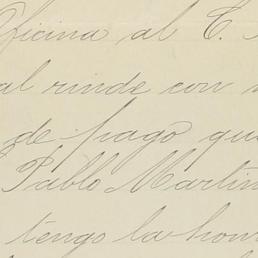 Oficina al C.
al rinde con
de pago que
Pablo Martin
tengo la hon